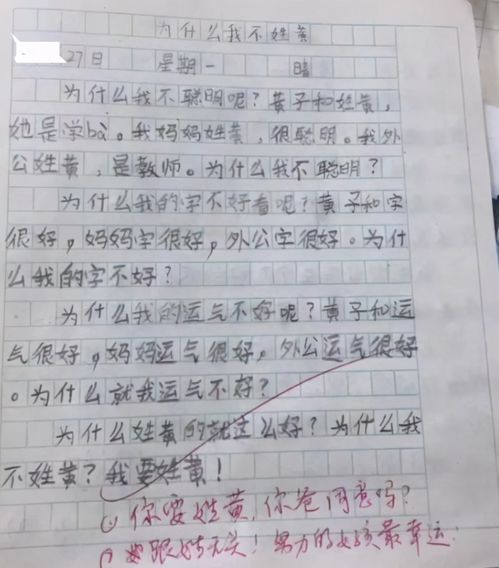 为什么我不姓黄
27日 星期一 晴
为什么我不聪明呢？黄子和姓黄，
她是学bà。我妈妈姓黄，很聪明。我外
公姓黄，是教师。为什么我不聪明？
为什么我的字不好看呢？黄子和字
很好，妈妈字很好，外公字很好。为什
么我的字不好？
为什么我的运气不好呢？黄子和运
气很好，妈妈运气很好，外公运气很好
。为什么就我运气不好？
为什么姓黄的就这么好？为什么我
不姓黄？我要姓黄！
你要姓黄，你爸同意吗？
跟姓无关！努力的女孩最幸运！